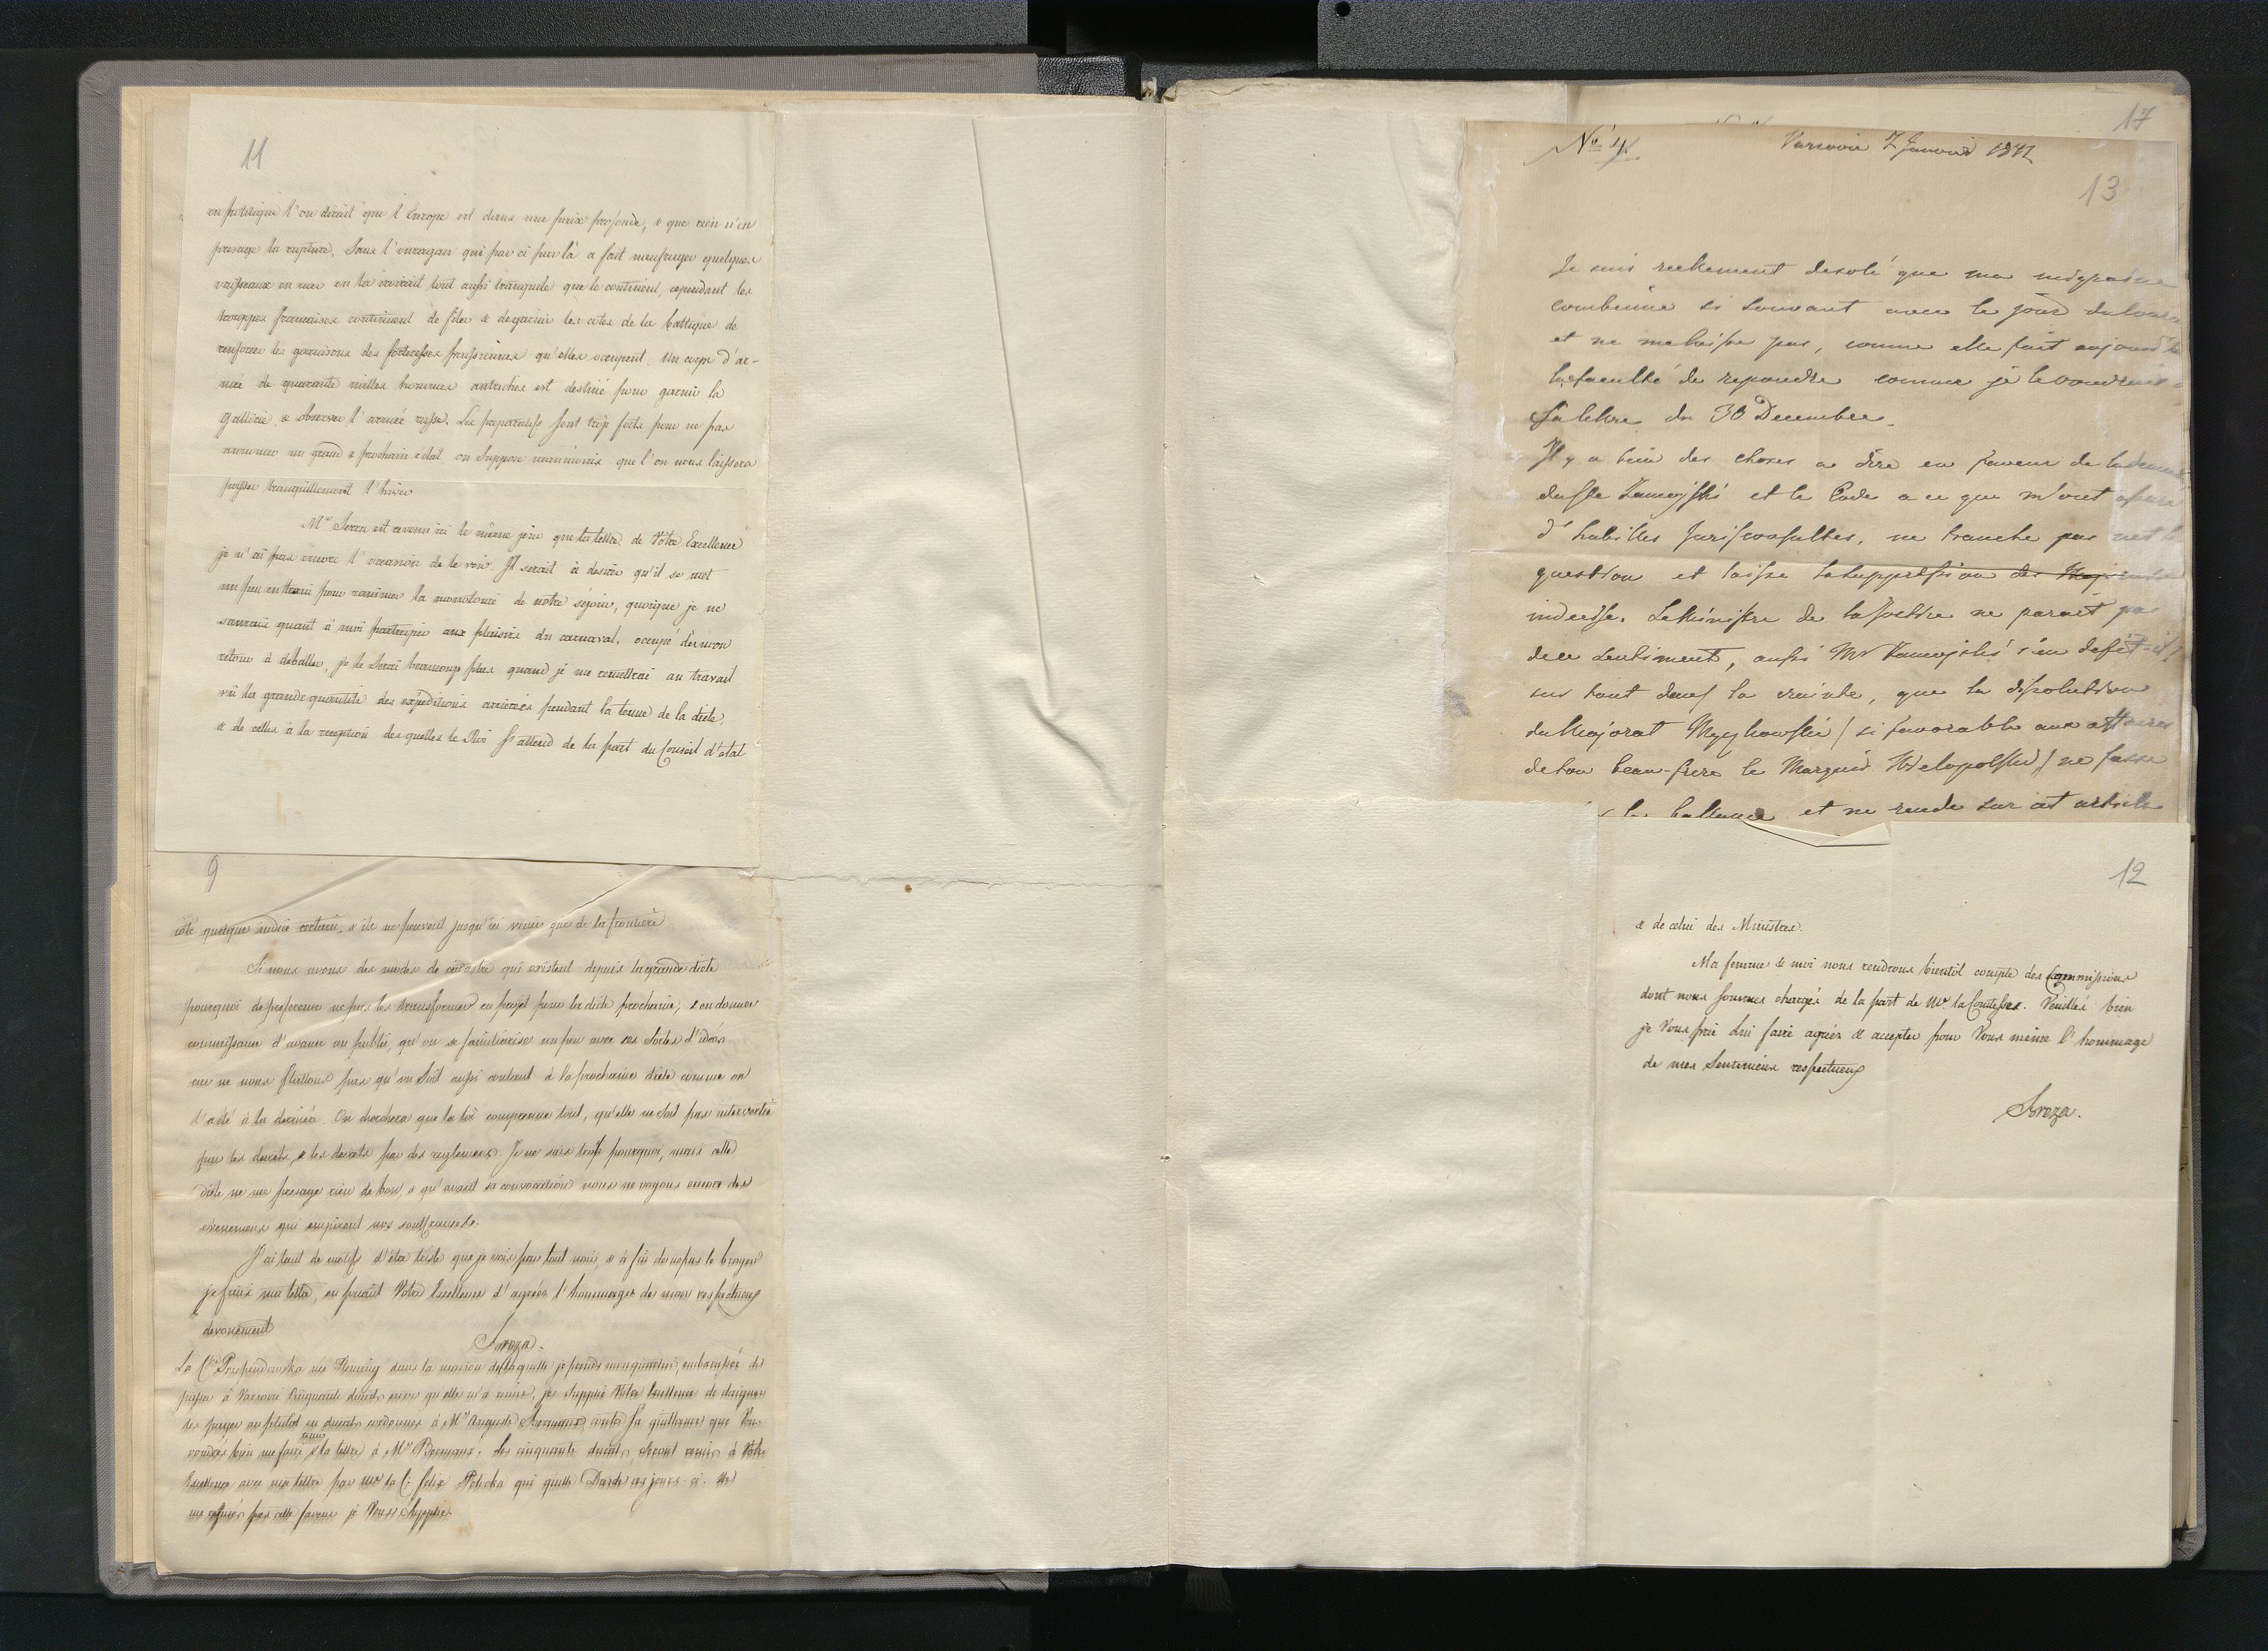 11
en politique l'on dirait que l'Europe est dans une paix profonde, & que rien n'en
presage la rupture. Sans l'ouragan qui par ci par là a fait naufrager quelques
vaisseaux en mer on la croirait tout aussi tranquile que le continent, cependant les
trouppes francaises continuent de filer & degarnir les cotes de la baltique de
renforcer les garnisons des forteresses prussiennes qu'elles occupent. Un corps d'ar-
mée de quarante milles hommes autrichiens est destiné pour garnir la
Gallicie & observer l'armée russe. Les preparatifs sont trop forts pour ne pas
annoncer un grand & prochain eclat on suppose neanmoins que l'on nous laissera
passer tranquillement l'hiver
Mr Serra est revenu ici le même jour que la lettre de Votre Excellence
je n'ai pas encore l'occasion de le voir. Il serait à desirer qu'il se met
un peu en train pour ranimer la monotonie de notre séjour, quoique je ne
saurais quant à moi participer aux plaisirs du carnaval. occupé dès mon
retour à deballer, je le serai beaucoup plus quand je me remettrai au travail
vû la grande quantité des expéditions arrierées pendant la tenue de la diete,
& de celles à la reception des quelles le Roi s'attend de la part du Conseil d'etat
9
coté quelque indice certain, & ils ne pouvait jusqu'ici venir que de la frontiere
Si nous avons des modes de cadastre qui existent depuis la grande diete
pourquoi de preference ne pas les transformer en projet pour la diete prochaine, & en donner
connaissance d'avance au public, qu'on se familiarise un peu avec ces sortes d'idées
car ne nous flattons pas qu'on soit aussi content à la prochaine diete comme on
l'a été à la derniere. On cherchera que la loi comprenne tout, qu'elle ne soit pas intervertie
par les decrets, & les decrets par des reglemens. Je ne sais trop pourquoi, mais cette
diete ne me presage rien de bon, & qu'avant sa convocation nous ne voyons encore des
evenemens qui empirent nos souffrances.
J'ai tant de motifs d'être triste que je vois par tout noir, & à fin de ne pas le broyer
je finis ma lettre, en priant Votre Excellence d'agréer l'hommage de mon respectueux
devouement
Breza.
La Csse Przependowska née Fleming dans la maison de laquelle je prends mon quartier, embarassée de
passer à Varsovie Cinquante ducats en or qu'elle m'a remis, je supplie Votre Excellence de daigner
les payer au plutot en ducats cordonnés à Mr Auguste contre sa quittance que Vous
voudrés bien me faire tenir & la lettre à Mr. Les cinquante ducats seront remis à Votre
Excellence avec ma lettre par Me la C: felix Potocka qui quitte Dresde ces jours-ci. Ne
me refusés pas cette faveur je Vous supplie.
17
No 4
Varsovie 7 Janvier 1812
13
Je suis reelement desolé que ma migraine
combinée si souvant avec le jour du
et ne me laisse pas, comme elle fait aujourd'hui
la faculté de repondre comme je le voudrais a
Sa lettre du 30 Decembre.
Il y a bien des choses a dire en faveur de la
du Zamoyski et le Code a ce que m'ont assuré
d'habilles Jurisconsultes, ne tranche pas net la
question et laisse la suppression des
indecise. Le Ministre de la Justice ne parait pas
de ce sentiment, aussi Mr Zamoyski s'en defie-t-il,
sur tout dans la crainte, que la dissolution
du Majorat Myszkowski / si favorable aux affaires
de ton beau-frere le Marquis Wielopolski / ne fasse
la ballance et ne rende sur cet article
12
& de celui des Ministres.
Ma femme & moi nous rendrons bientôt compte des Commissions
dont nous sommes chargés de la part de Me la Comtesse. Veuillés bien
je Vous prie Lui faire agréer & accepter pour Vous même l'hommage
de mes Sentimens respectueux
Breza.